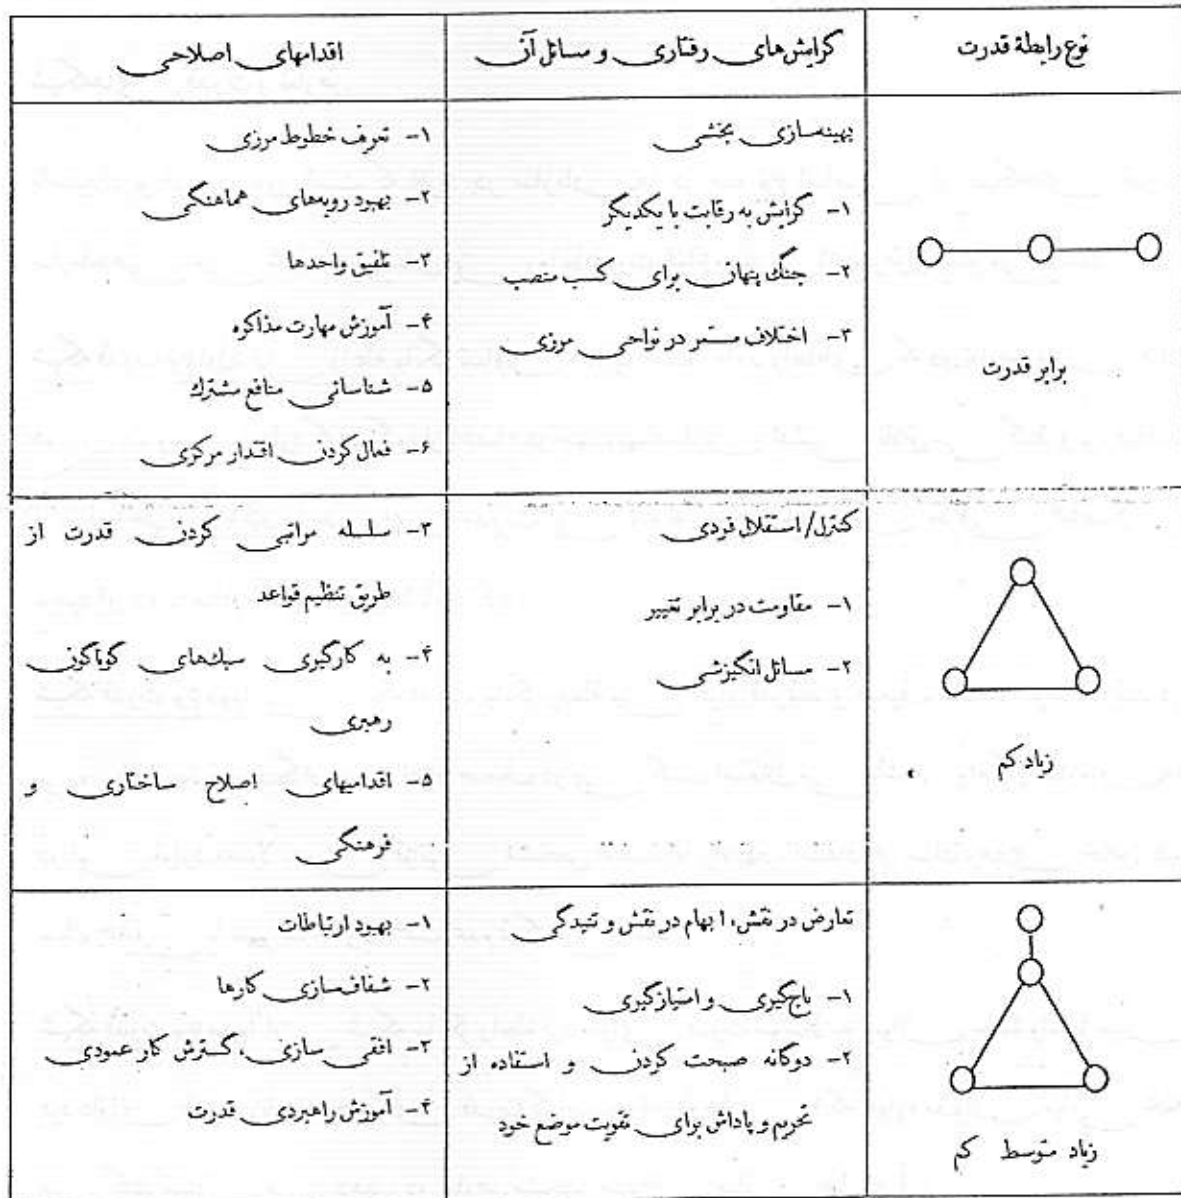 نوع رابطهٔ قدرت
گرایش‌های رفتاری و مسائل آن
اقدامهای اصلاحی
برابر قدرت
بهینه‌سازی بخشی
۱- گرایش به رقابت با یکدیگر
۲- جنگ پنهانی برای کسب منصب
۳- اختلاف مستمر در نواحی مرزی
۱- تعریف خطوط مرزی
۲- بهبود رویه‌های هماهنگی
۳- تلفیق واحدها
۴- آموزش مهارت مذاکره
۵- شناسائی منافع مشترك
۶- فعال کردن اقتدار مرکزی
زیاد کم
کنترل/استقلال فردی
۱- مقاومت در برابر تغییر
۲- مسائل انگیزشی
۳- سلسله مراتبی کردن قدرت از
طریق تنظیم قواعد
۴- به کارگیری سبك‌های گوناگون
رهبری
۵- اقدامهای اصلاح ساختاری و
فرهنگی
زیاد متوسط کم
تعارض در نقش، ابهام در نقش و تنیدگی
۱- باج‌گیری و امتیازگیری
۲- دوگانه صحبت کردن و استفاده از
تحریم و پاداش برای تقویت موضع خود
۱- بهبود ارتباطات
۲- شفاف‌سازی کارها
۳- افقی سازی، گسترش کار عمودی
۴- آموزش راهبردی قدرت